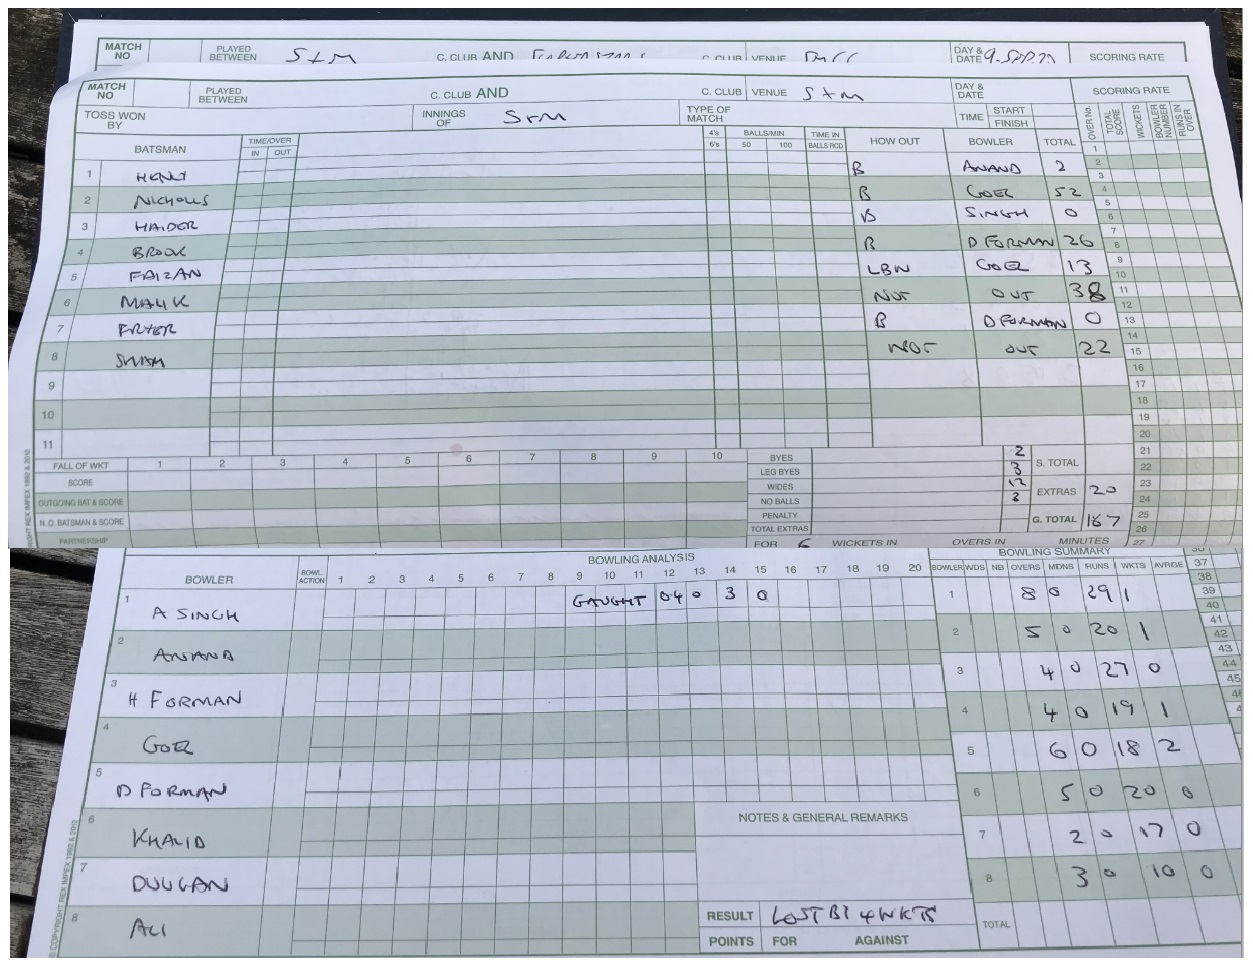 MATCH NO PLAYED BETWEEN S+M C. CLUB AND C. CLUB VENUE DAY & DATE SCORING RATE
MATCH NO PLAYED BETWEEN C. CLUB AND C. CLUB VENUE S+M DAY & DATE SCORING RATE
TOSS WON BY INNINGS OF S+M TYPE OF MATCH TIME START FINISH OVER No. TOTAL SCORE WICKETS BOWLER NUMBER RUNS IN OVER
BATSMAN TIME/OVER IN OUT 4's 6's BALLS/MIN 50 100 TIME IN BALLS RCD HOW OUT BOWLER TOTAL
1 HENLY B ANAND 2
2 NICHOLLS B GOEL 52
3 HAIDER B SINGH 0
4 BROOK B D FORMAN 26
5 FAIZAN LBW GOEL 13
6 MALIK NOT OUT 38
7 FRYER B D FORMAN 0
8 SHAH NOT OUT 22
9
10
11
1
2
3
4
5
6
7
8
9
10
11
12
13
14
15
16
17
18
19
20
21
22
23
24
25
26
27
FALL OF WKT 1 2 3 4 5 6 7 8 9 10 BYES 2 S. TOTAL
SCORE LEG BYES 3
OUTGOING BAT & SCORE WIDES 12 EXTRAS 20
N. O. BATSMAN & SCORE NO BALLS 3
PARTNERSHIP PENALTY G. TOTAL 167
TOTAL EXTRAS
FOR 6 WICKETS IN OVERS IN MINUTES
COPYRIGHT REX IMPEX 1992 & 2012
BOWLING ANALYSIS BOWLING SUMMARY
BOWLER BOWL. ACTION 1 2 3 4 5 6 7 8 9 10 11 12 13 14 15 16 17 18 19 20 BOWLER WDS NB OVERS MDNS RUNS WKTS AVRGE
1 A SINGH CAUGHT 04 0 3 0 1 8 0 29 1
2 ANAND 2 5 0 20 1
3 H FORMAN 3 4 0 27 0
4 GOEL 4 4 0 19 1
5 D FORMAN 5 6 0 18 2
6 KHALID 6 5 0 20 0
7 DUUGAN 7 2 0 17 0
8 ALI 8 3 0 10 0
36
37
38
39
40
41
42
43
44
45
NOTES & GENERAL REMARKS
RESULT LOST BY 4 WKTS TOTAL
POINTS FOR AGAINST
© COPYRIGHT REX IMPEX 1992 & 2012